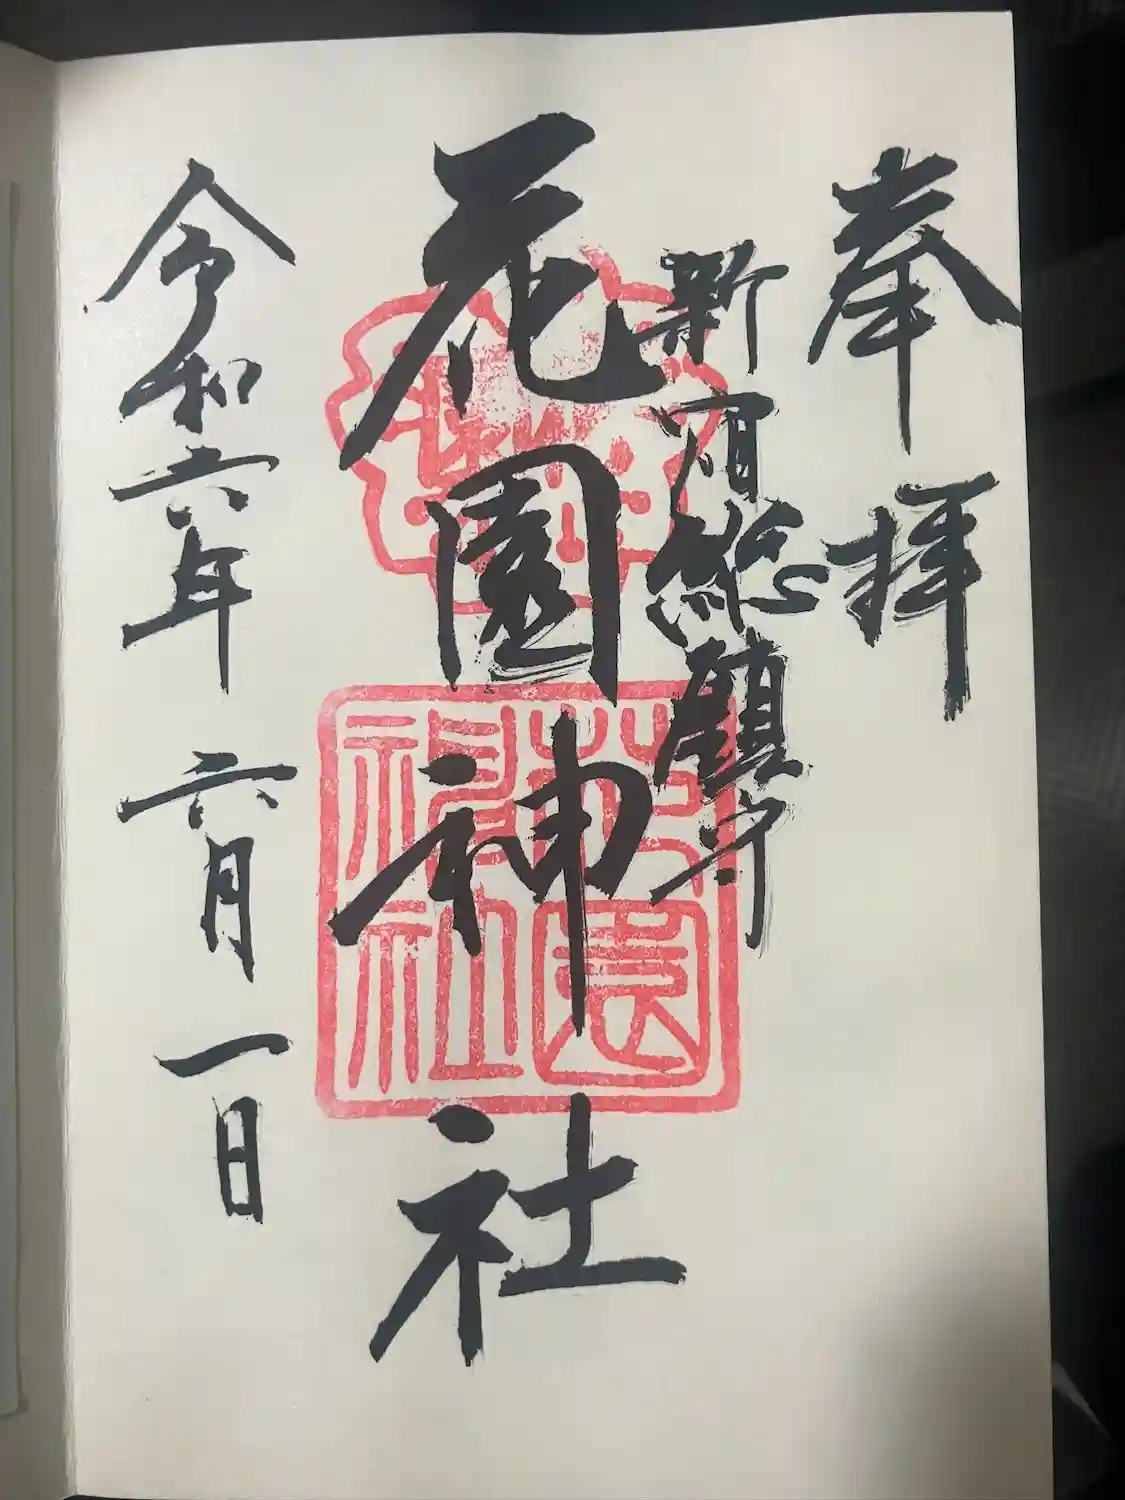 奉拝
新宿総鎮守
花園神社
令和六年 六月 一日
花園神社